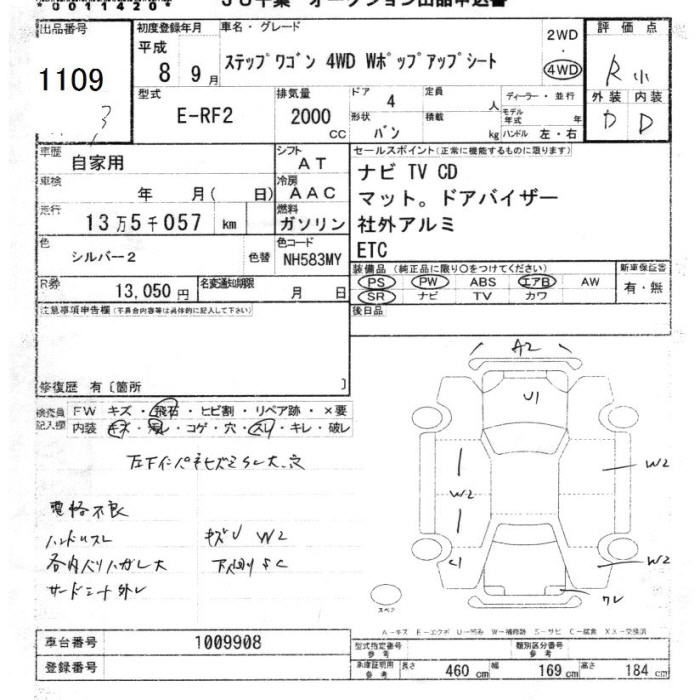 出品番号
1109
3
初度登録年月
平成
8 9月
車名・グレード
ステップワゴン 4WD Wポップアップシート
2WD
・
4WD
評価点
R 小
外装 内装
D D
型式
E-RF2
排気量
2000
cc
ドア
4
定員
人
形状
バン
積載
kg
ディーラー・並行
モデル年式
年
ハンドル 左・右
車歴
自家用
シフト
AT
車検
年 月( 日)
冷房
AAC
走行
13万5千057 km
燃料
ガソリン
色
シルバー2
色替
色コード
NH583MY
R券
13,050円
名変通知期限
月 日
セールスポイント(正常に機能するものに限ります)
ナビ TV CD
マット。ドアバイザー
社外アルミ
ETC
装備品(純正品に限り○をつけてください)
PS PW ABS エアB AW
SR ナビ TV カワ
新車保証書
有・無
後日品
注意事項申告欄(不具合内容等は具体的に記入して下さい)
修復歴 有〔箇所 〕
検査員記入欄
FW キズ・飛石・ヒビ割・リペア跡・×要
内装 キズ・汚レ・コゲ・穴・スレ・キレ・破レ
電格不良
ハンドルスレ
キズU W2
各内ハリハガレ大
サードシート外レ
A2
U1
W2
W2
C1
W2
ワレ
スペア
A-キズ E-エクボ U-凹み W-補修跡 S-サビ C-腐食 XX-交換済
車台番号
1009908
登録番号
型式指定番号
参考
類別区分番号
参考
車庫証明用
参考
長さ 460 cm 幅 169 cm 高さ 184 cm